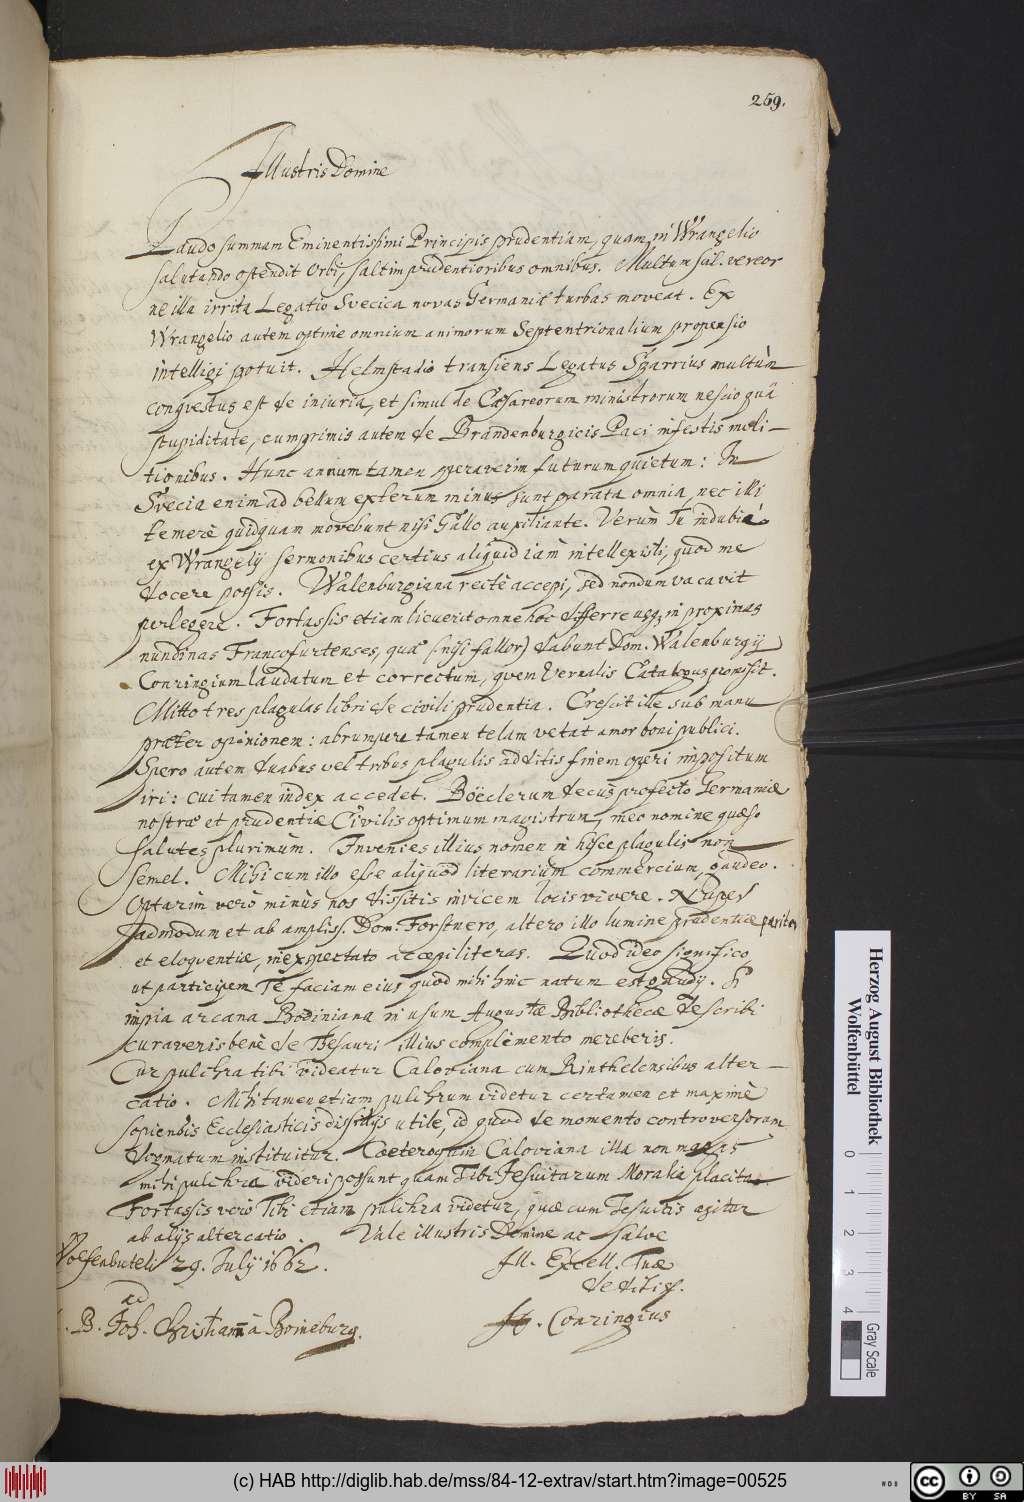 259.
Illustris Domine
Laudo summam Eminentissimi Principis prudentiam, quam in Wrangelio
salutando ostendit Orbi, saltim prudentioribus omnibus. Multum scil. vereor
ne illa irrita Legatio Svecica novas Germaniæ turbas moveat. Ex
Wrangelio autem optime omnium animorum Septentrionalium propensio
intelligi potuit. Helmstadio transiens Legatus Sparrius multùm
conqvestus est de iniuria, et simul de Cæsareorum ministrorum nescio quâ
stupiditate, cumprimis autem de Brandenburgicis Paci infestis moli-
tionibus. Hunc annum tamen speraverim futurum quietum: In
Svecia enim ad bellum exterum minus sunt parata omnia, nec illi
temerè quidquam movebunt nisi Gallo auxiliante. Verùm Tu indubiè
ex Wrangelij sermonibus certius aliquid iam intellexisti, quod me
docere possis. Walenburgiana rectè accepi, sed nondum vacavit
perlegere. Fortassis etiam licuerit omne hoc differre usq; in proximas
nundinas Francofurtenses, quâ (nisi fallor) dabunt Dom. Walenburgij
Conringium laudatum et correctum, qvem Vernalis Catalogus promisit.
Mitto tres plagulas libri de civili prudentia. Crescit ille sub manu
præter opinionem: abrumpere tamen telam vetat amor boni publici.
Spero autem duabus vel tribus plagulis additis finem operi impositum
iri: cui tamen index accedet. Böeclerum decus profecto Germaniæ
nostræ et prudentiæ Civilis optimum magistrum, meo nomine quæso
salutes plurimùm. Invenies illius nomen in hisce plagulis non
semel. Mihi cum illo esse aliquod literarium commercium, gaudeo.
Optarim verò minùs nos dissitis invicem locis vivere. Nuper
admodum et ab ampliss. Dom. Forstnero, altero illo lumine prudentiæ pariter
et eloquentiæ, inexpectato accepi literas. Quod ideo significo,
ut participem Te faciam eius quod mihi hinc natum est gaudij. Si
impia arcana Bodiniana in usum Augustæ Bibliothecæ describi
curaveris benè de Thesauri illius complemento mereberis.
Cur pulchra tibi videatur Caloviana cum Rinthelensibus alter-
catio. Mihi tamen etiam pulchrum videtur certamen et maximè
sopiendis Ecclesiasticis dissidijs utile, id quod de momento controversorum
dogmatum instituitur. Cæteroquin Caloviana illa non magis
mihi pulchra videri possunt quam Tibi Jesuitarum Moralia placita.
Fortassis verò Tibi etiam pulchra videtur, quæ cum Jesuitis agitur
ab alijs altercatio. Vale illustris Domine ac Salve
Wolfenbuteli 29. Julij 1662.
Ill. Excell. Tuæ
deditiss.
ad
H. Conringius
L. B. Joh. Christian à Boineburg.
Herzog August Bibliothek
Wolfenbüttel
0 1 2 3 4 Gray Scale
(c) HAB http://diglib.hab.de/mss/84-12-extrav/start.htm?image=00525
cc BY SA